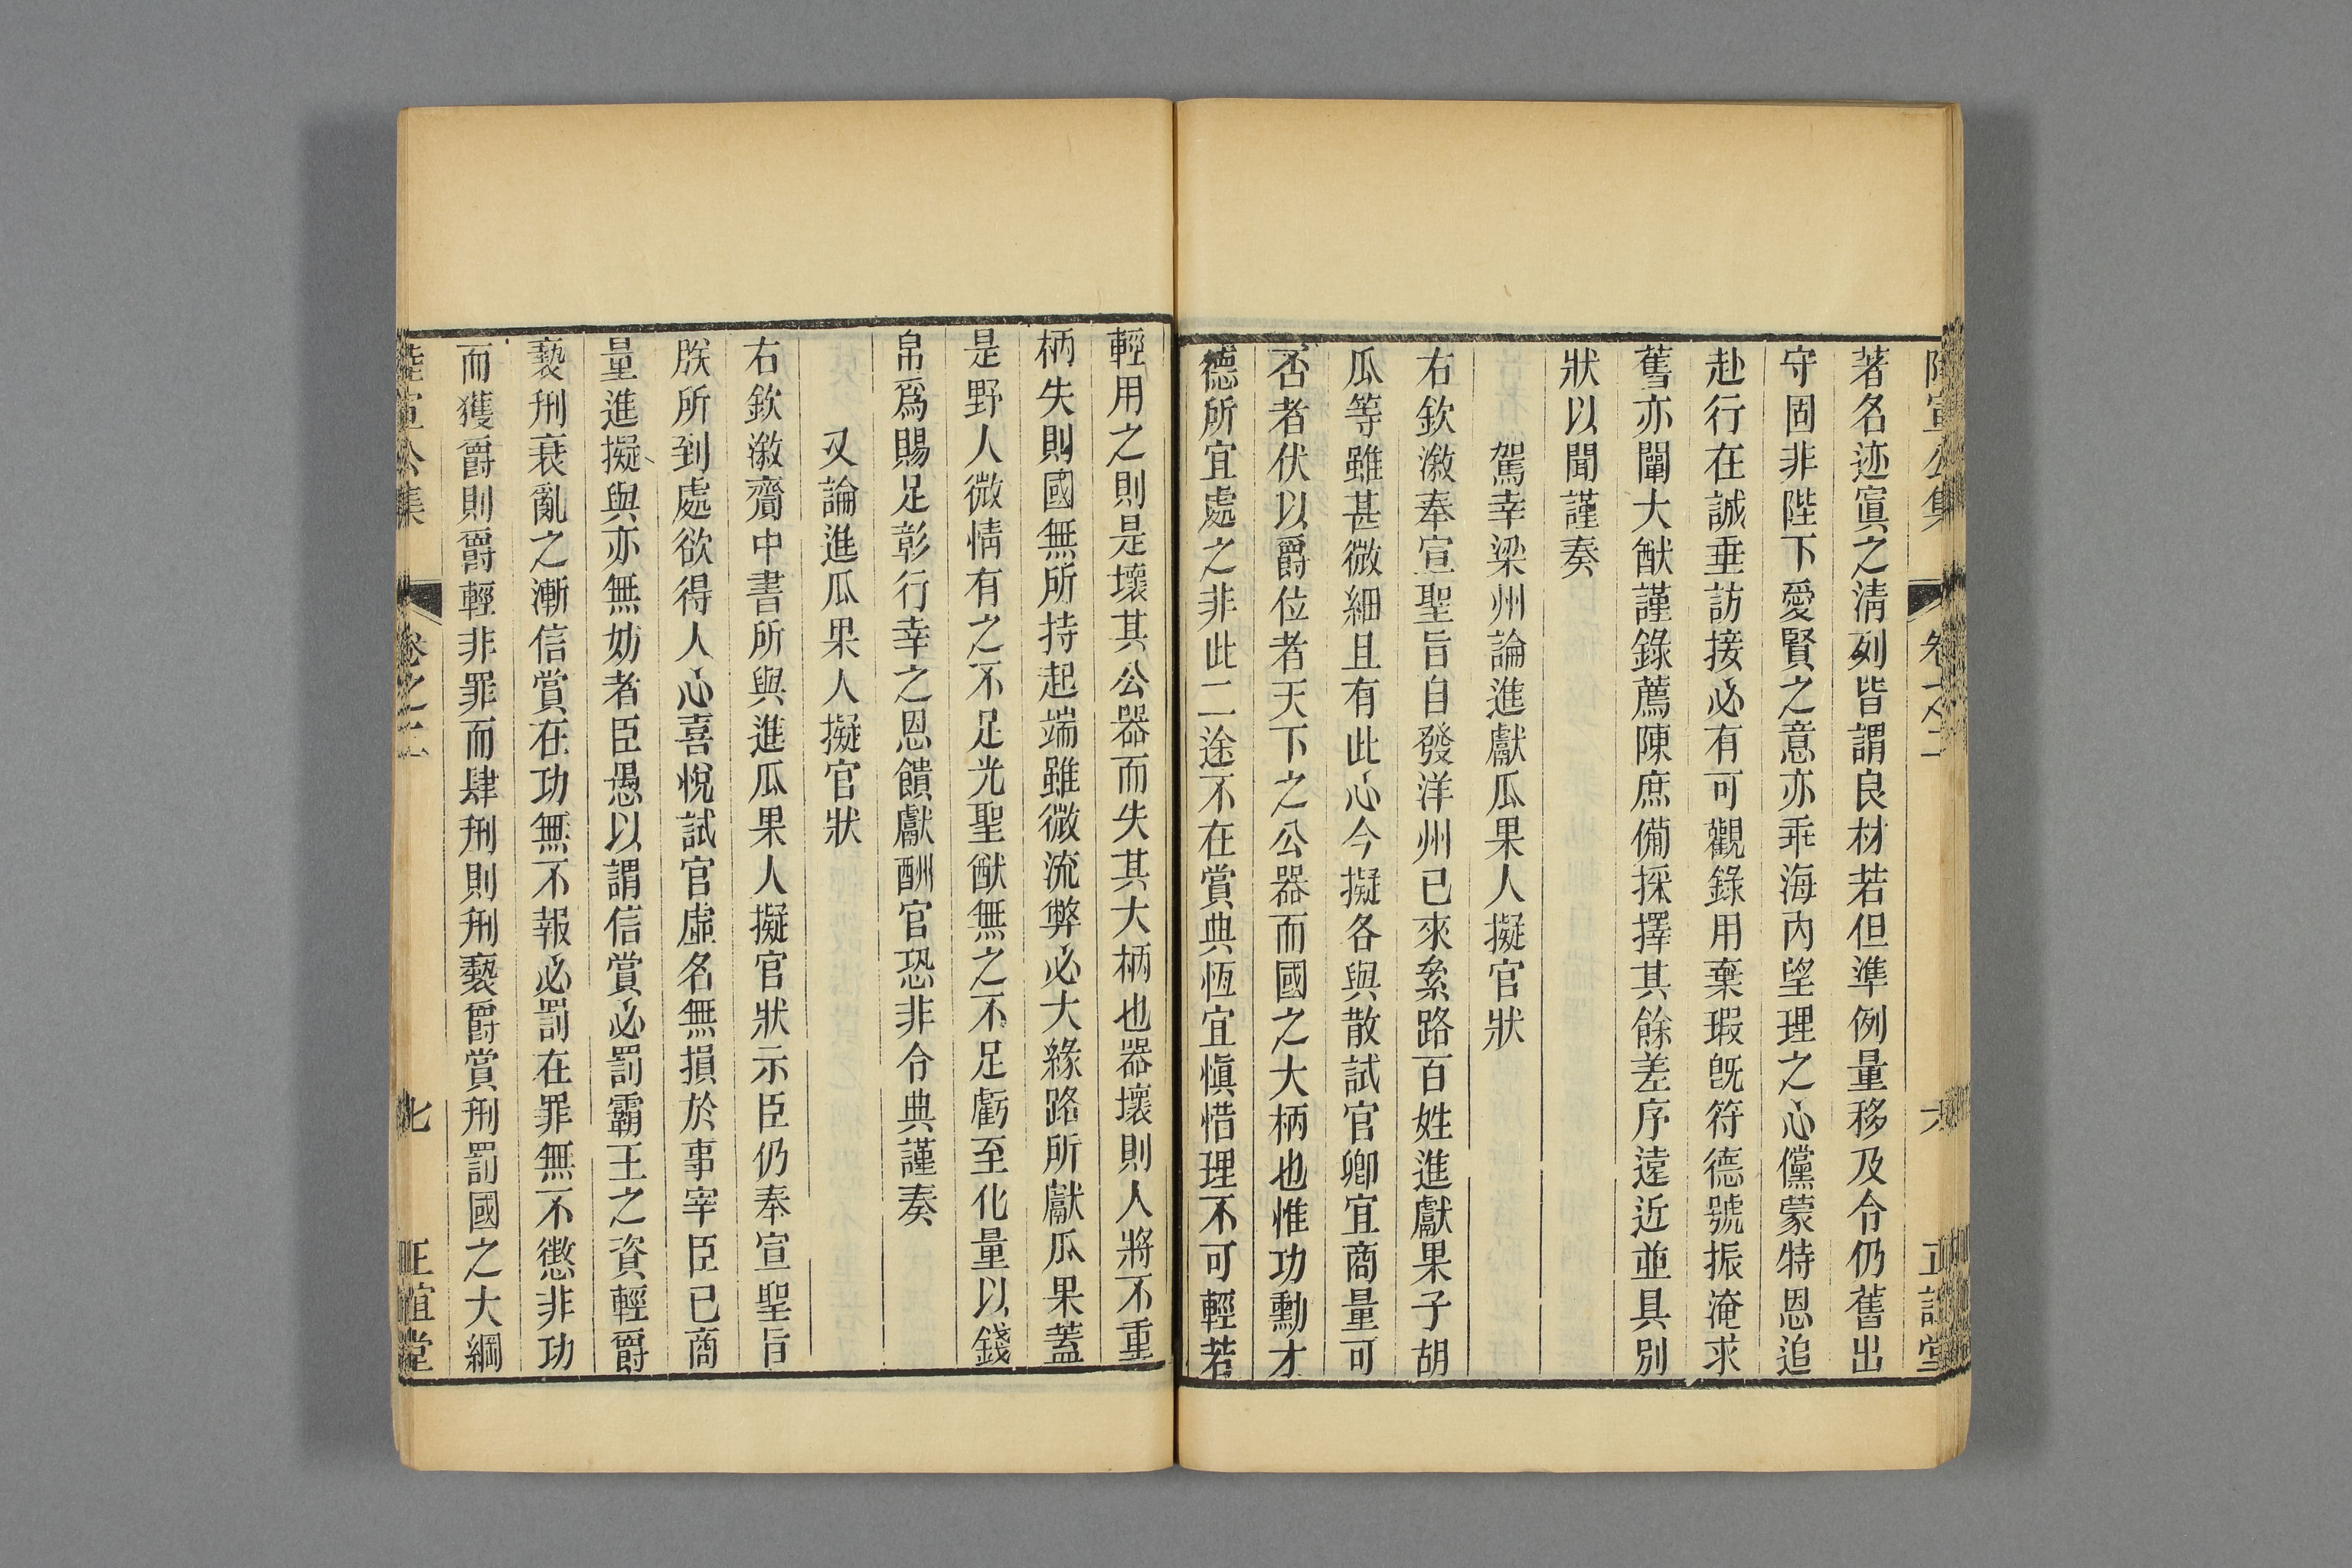 陸宣公集 卷之二 六 正誼堂
著名迹寘之淸列皆謂良材若但準例量移及令仍舊出
守固非陛下愛賢之意亦乖海內望理之心儻蒙特恩追
赴行在誠垂訪接必有可觀錄用棄瑕旣符德號振淹求
舊亦闡大猷謹錄薦陳庶備採擇其餘差序遠近並具別
狀以聞謹奏
駕幸梁州論進獻瓜果人擬官狀
右欽漵奉宣聖旨自發洋州已來縈路百姓進獻果子胡
瓜等雖甚微細且有此心今擬各與散試官卿宜商量可
否者伏以爵位者天下之公器而國之大柄也惟功勳才
德所宜處之非此二途不在賞典恆宜愼惜理不可輕若
輕用之則是壞其公器而失其大柄也器壞則人將不重
柄失則國無所持起端雖微流弊必大緣路所獻瓜果蓋
是野人微情有之不足光聖猷無之不足虧至化量以錢
帛爲賜足彰行幸之恩饋獻酬官恐非令典謹奏
又論進瓜果人擬官狀
右欽漵齎中書所與進瓜果人擬官狀示臣仍奉宣聖旨
朕所到處欲得人心喜悅試官虛名無損於事宰臣已商
量進擬與亦無妨者臣愚以謂信賞必罰霸王之資輕爵
褻刑衰亂之漸信賞在功無不報必罰在罪無不懲非功
而獲爵則爵輕非罪而肆刑則刑褻爵賞刑罰國之大綱
陸宣公集 卷之二 七 正誼堂